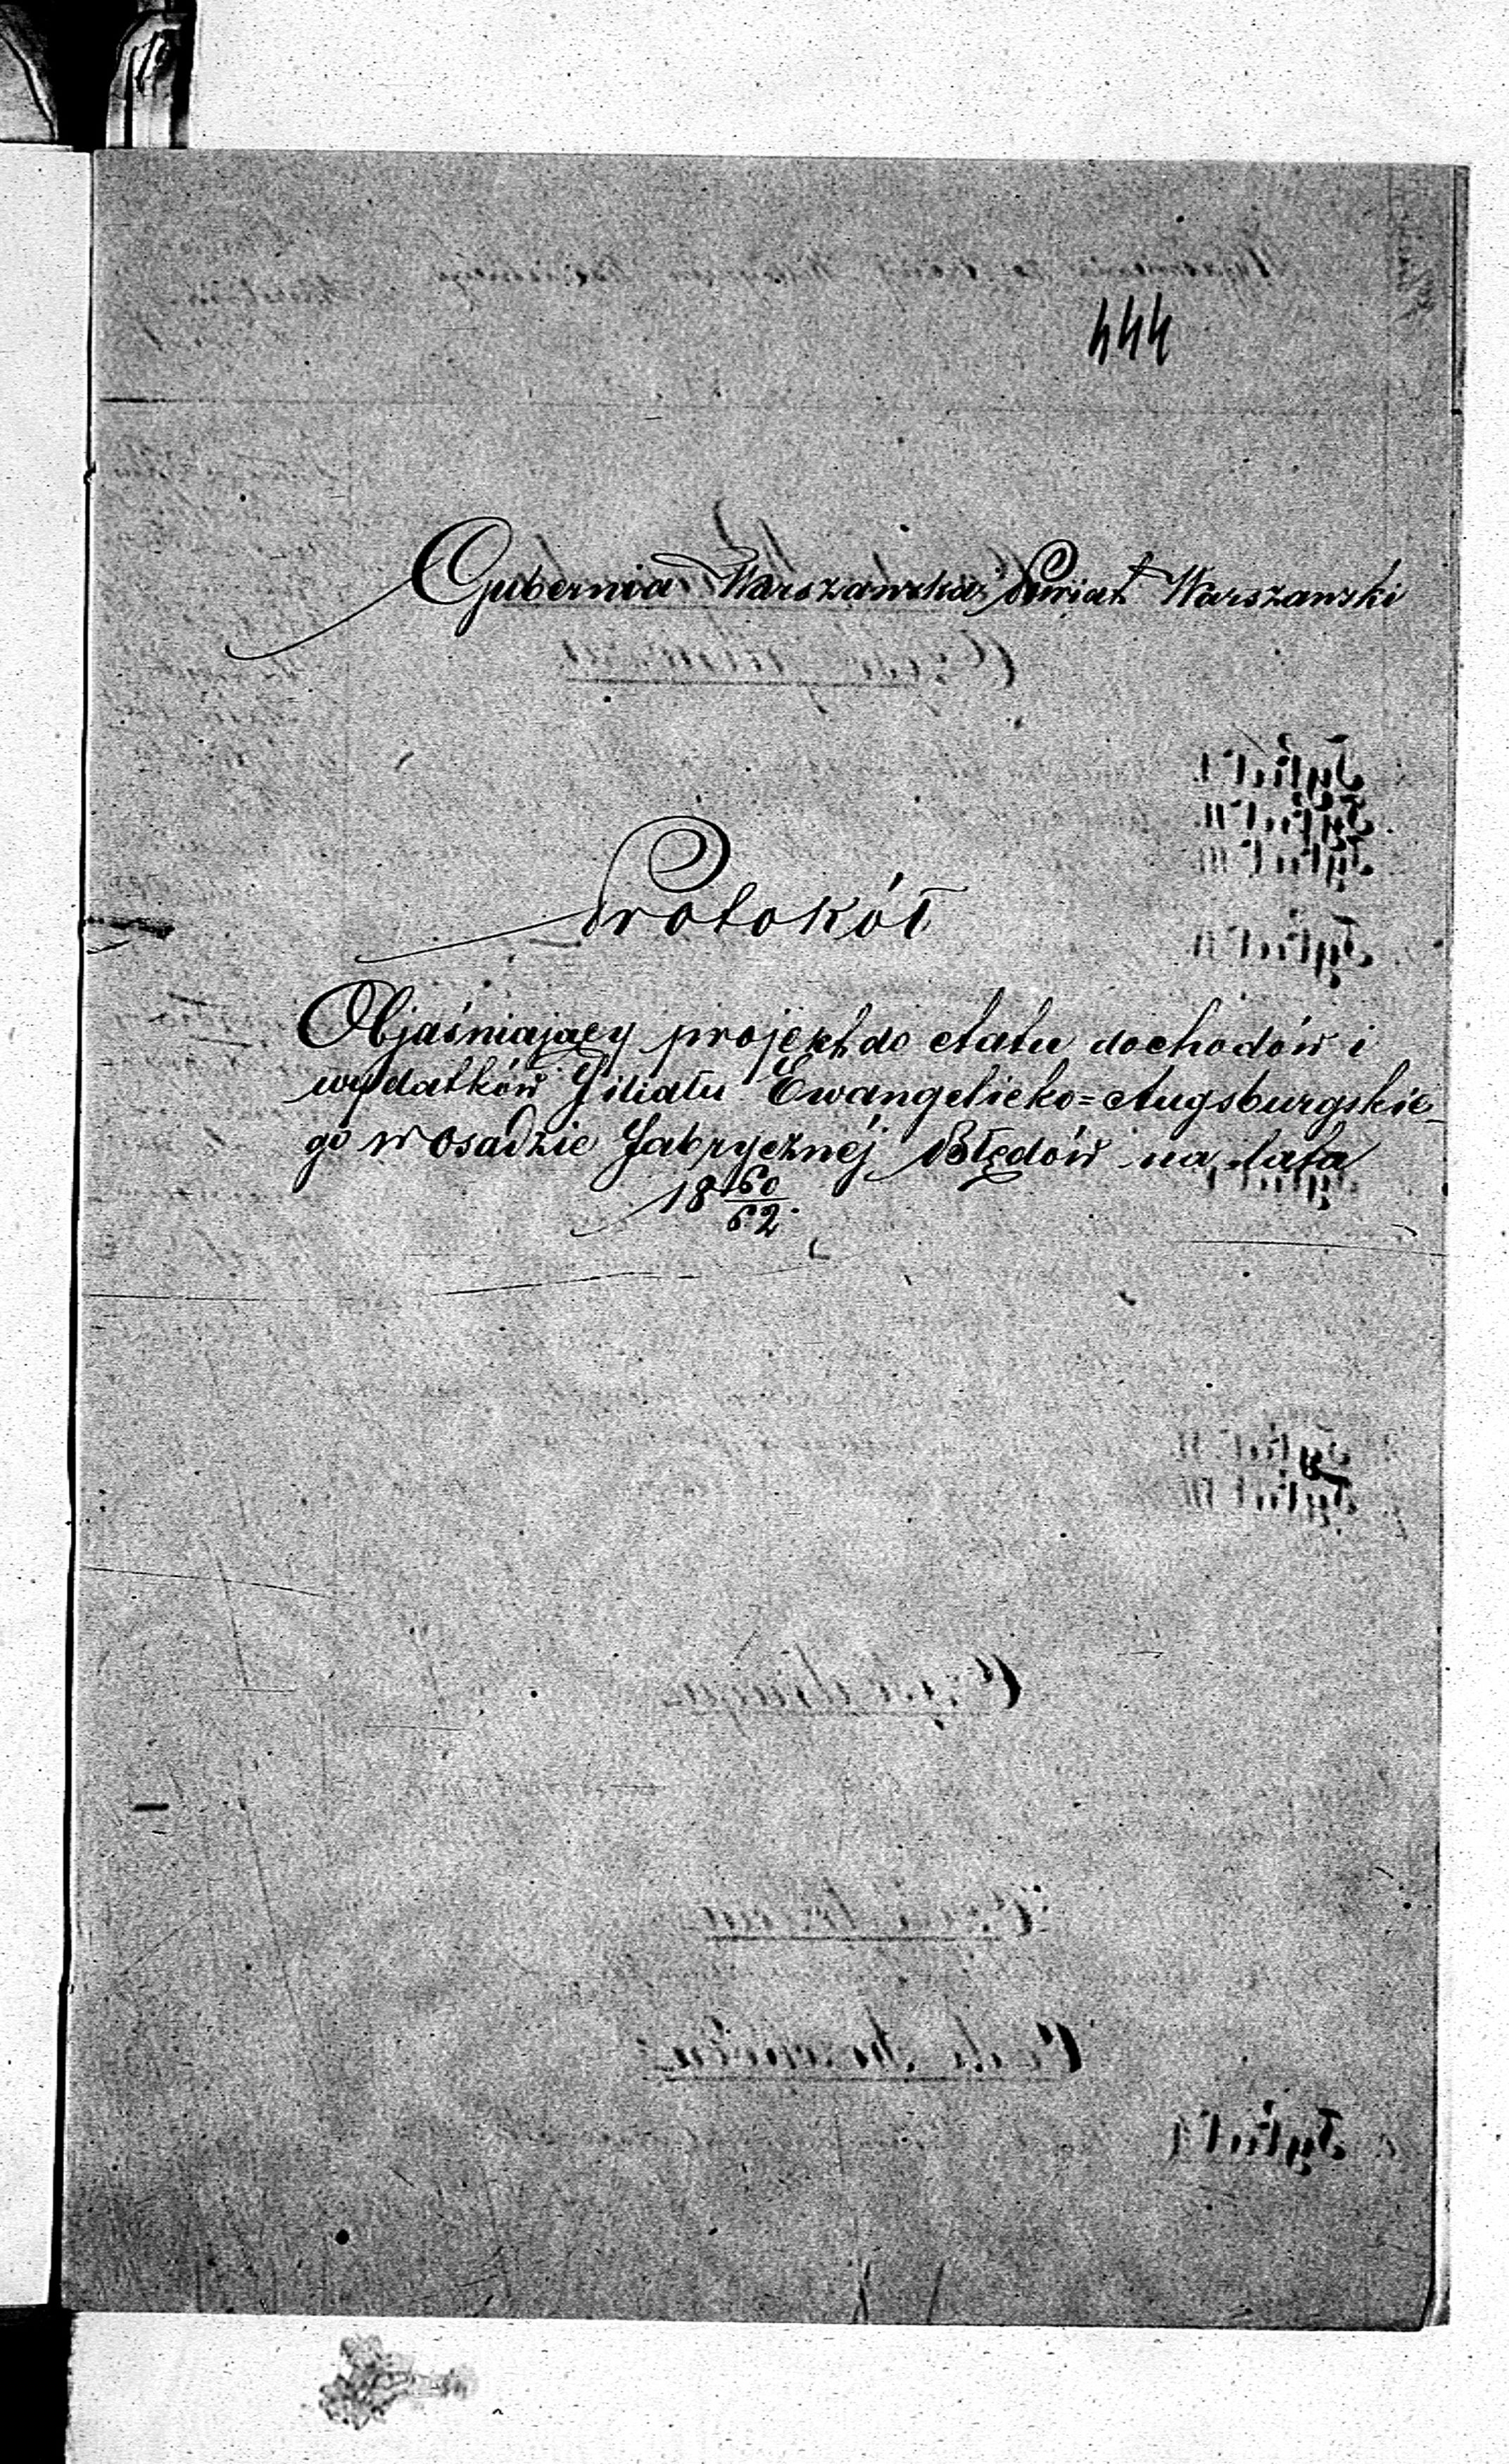 444
Gubernia Warszawska Powiat Warszawski
Protokół
Objaśniający projekt do etatu dochodów i
wydatków Filiału Ewangelicko=Augsburgskie_
go w osadzie fabrycznéj Błędów na lata
18 60/62.